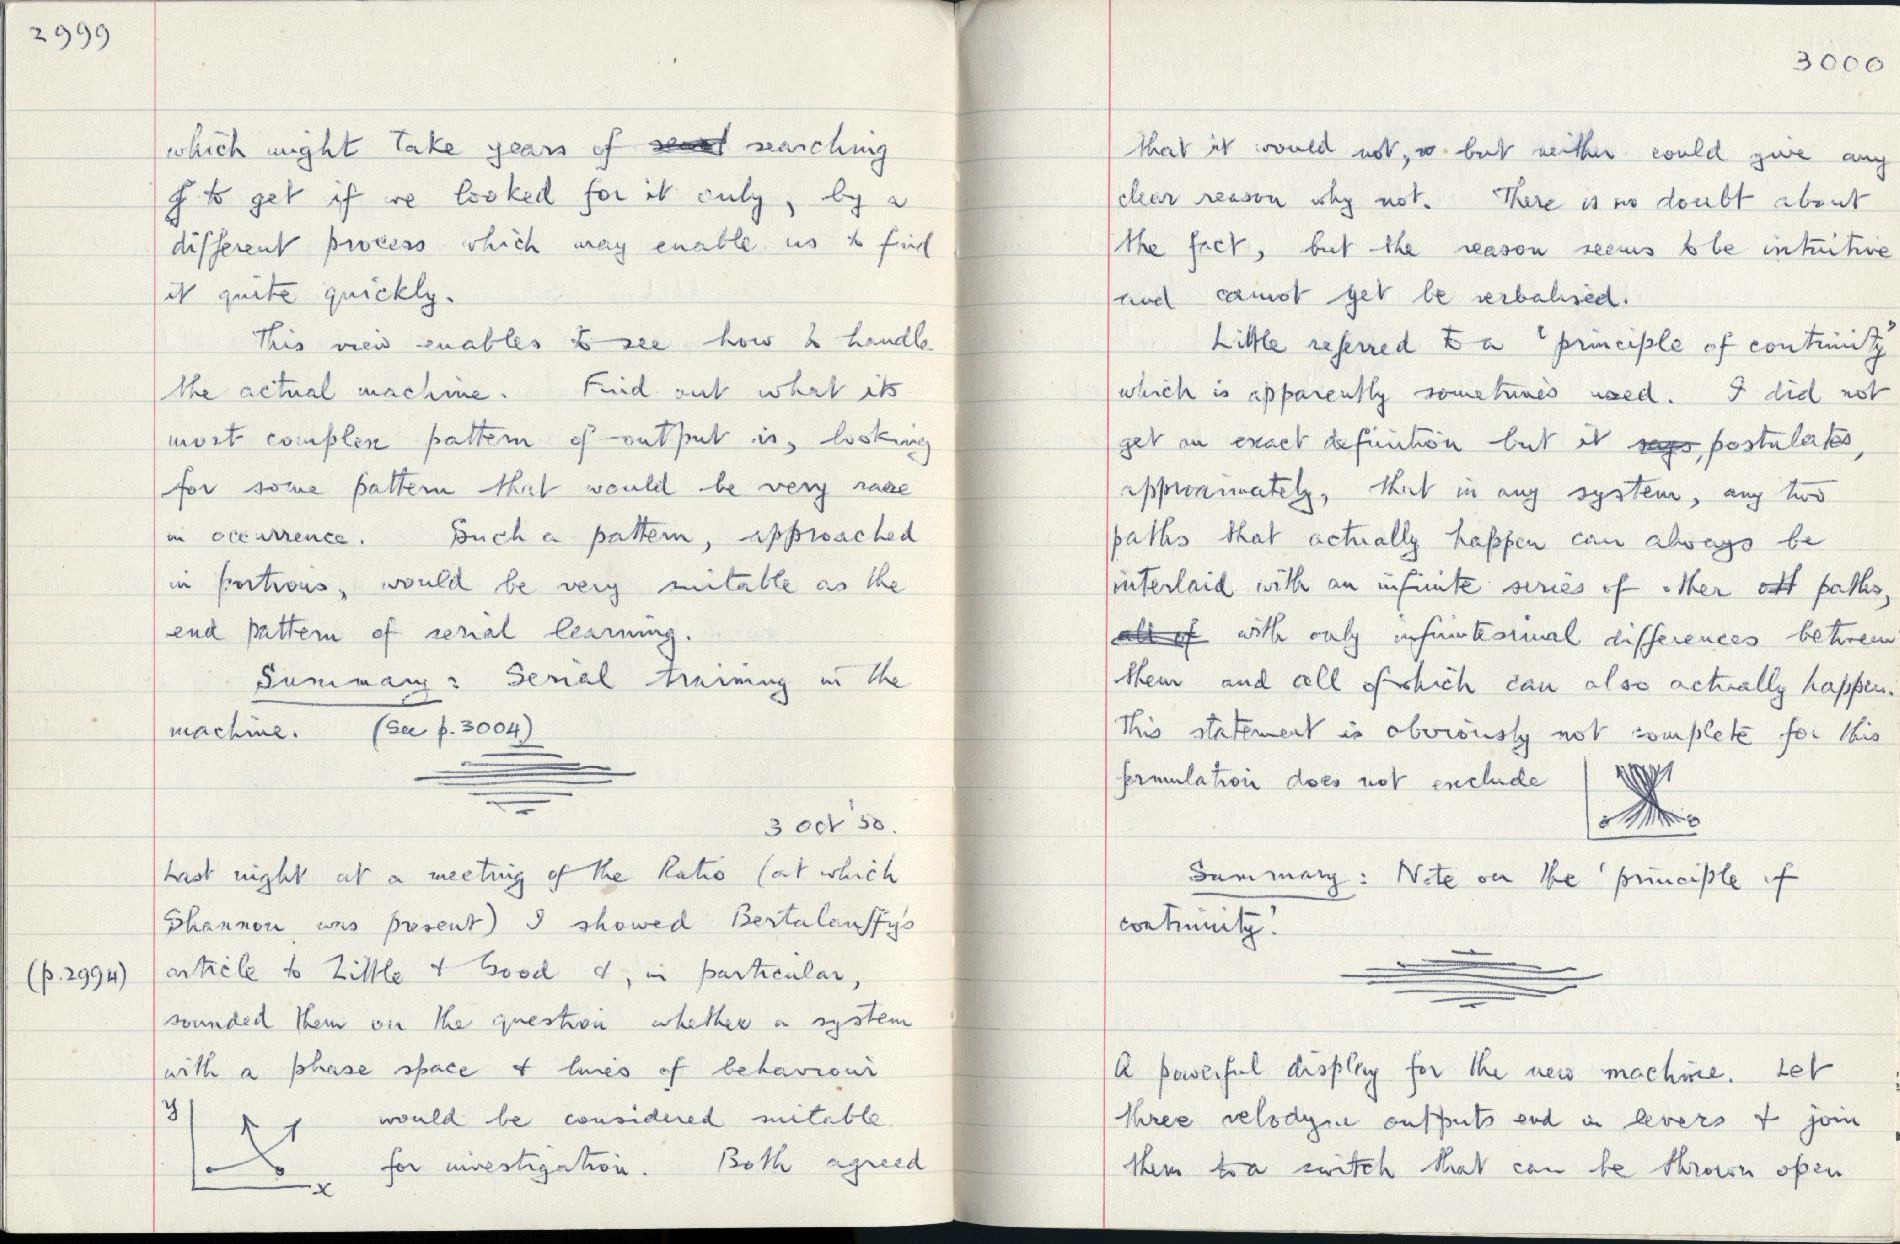 2999
which might take years of searching
to get if we looked for it only, by a
different process which may enable us to find
it quite quickly.
This view enables to see how to handle
the actual machine. Find out what its
most complex pattern of output is, looking
for some pattern that would be very rare
in occurrence. Such a pattern, approached
in portions, would be very suitable as the
end pattern of serial learning.
Summary: Serial training in the
machine. (See p.3004)
3 Oct '50.
Last night at a meeting of the Ratio (at which
Shannon was present) I showed Bertalanffy's
(p.2994) article to Little & Good &, in particular,
sounded them on the question whether a system
with a phase space & lines of behaviour
y would be considered suitable
for investigation. Both agreed
x
3000
that it would not, but neither could give any
clear reason why not. There is no doubt about
the fact, but the reason seems to be intuitive
and cannot yet be verbalised.
Little referred to a 'principle of continuity'
which is apparently sometimes used. I did not
get an exact definition but it says, postulates,
approximately, that in any system, any two
paths that actually happen can always be
interlaid with an infinite series of other oth paths,
all of with only infinitesimal differences between
them and all of which can also actually happen.
This statement is obviously not complete for this
formulation does not exclude
Summary: Note on the 'principle of
continuity'.
A powerful display for the new machine. Let
three velodyne outputs end in levers & join
them to a switch that can be thrown open